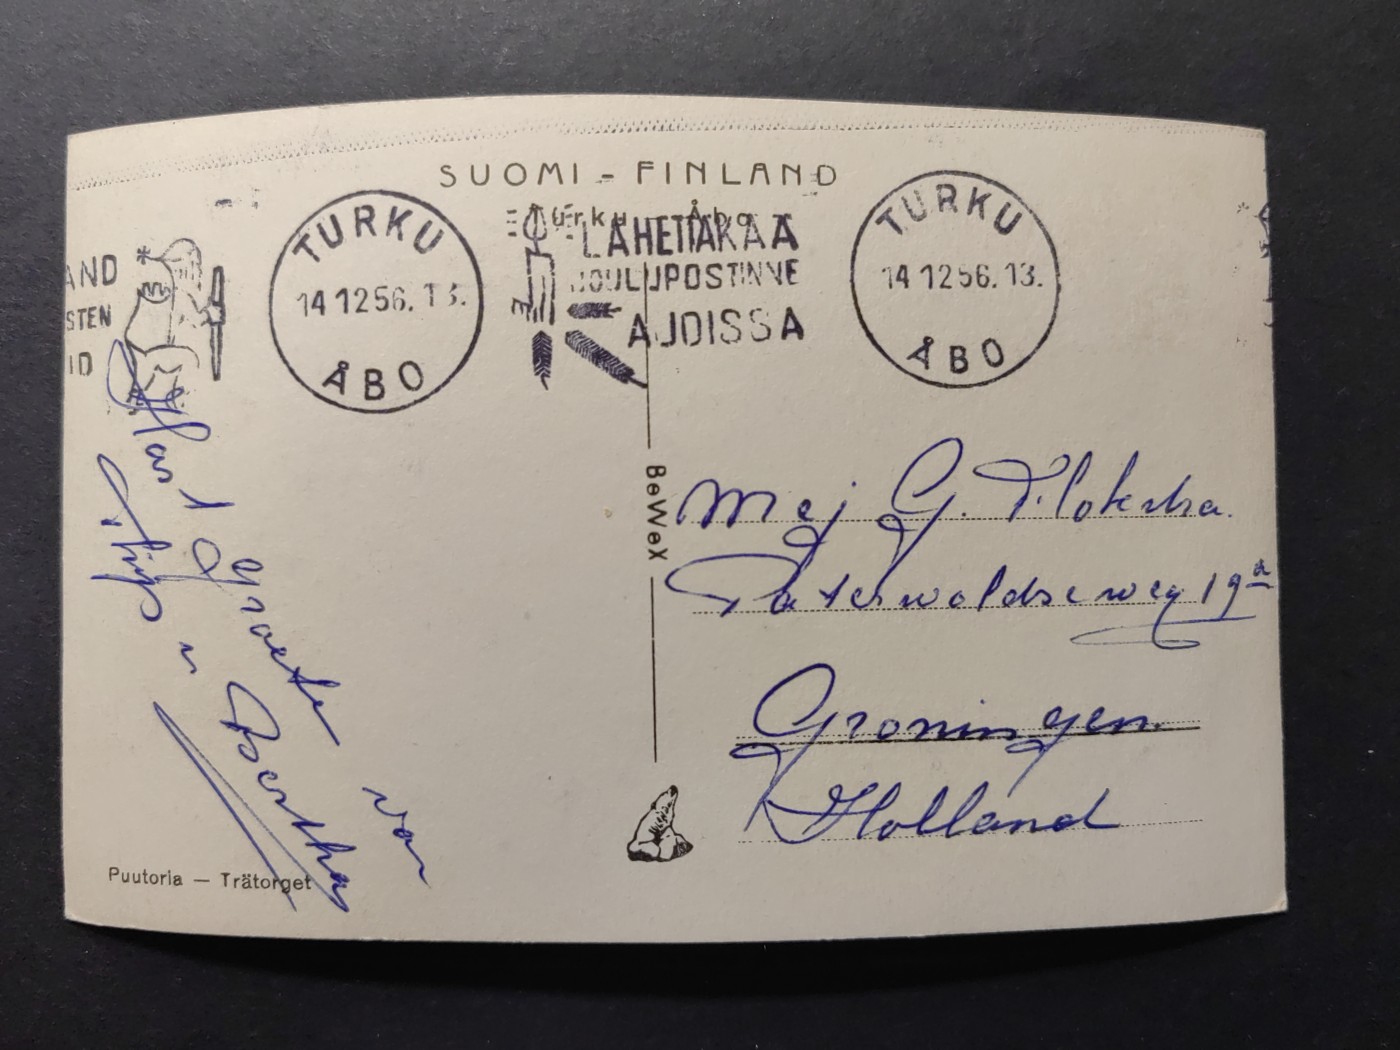 SUOMI - FINLAND
Turku Åbo
TURKU
14 12 56. 13.
ÅBO
LÄHETTÄKÄÄ
JOULUPOSTINNE
AJOISSA
TURKU
14 12 56. 13.
ÅBO
AND
STEN
ID
Hart groeten van
Bertha
BeWeX
Mej G.
Paterswoldseweg 19a
Groningen
Holland
Puutoria — Trätorget